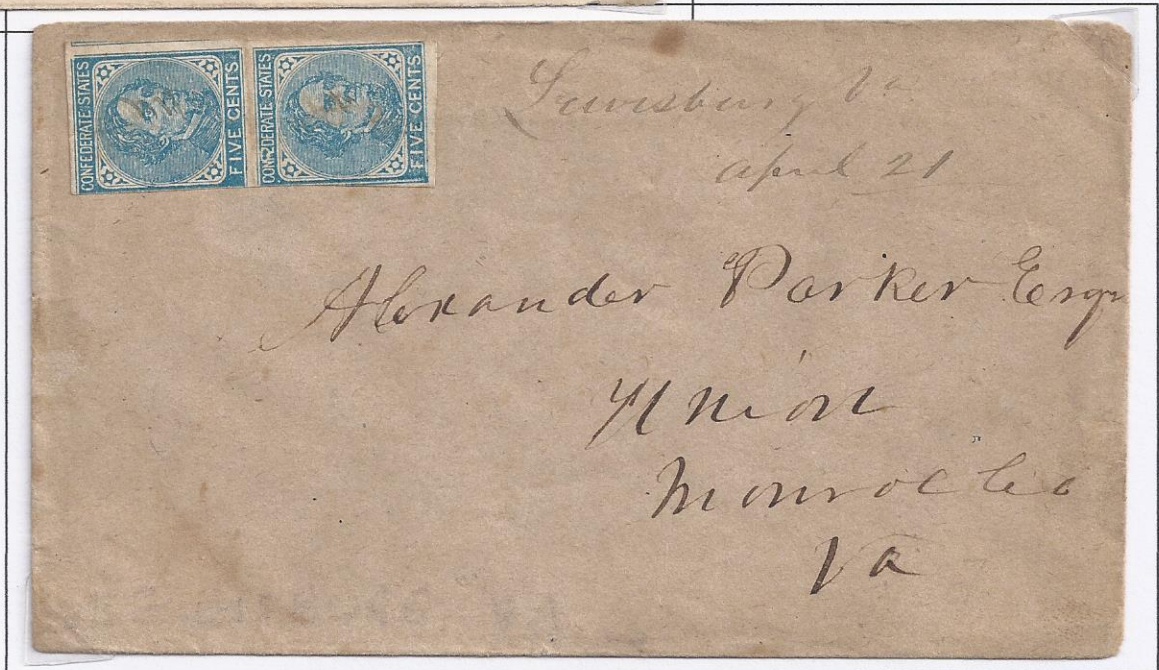 CONFEDERATE STATES
FIVE CENTS
CONFEDERATE STATES
FIVE CENTS
Lewisburg Va
april 21
Alexander Parker Esqr
Union
Monroe Co
Va